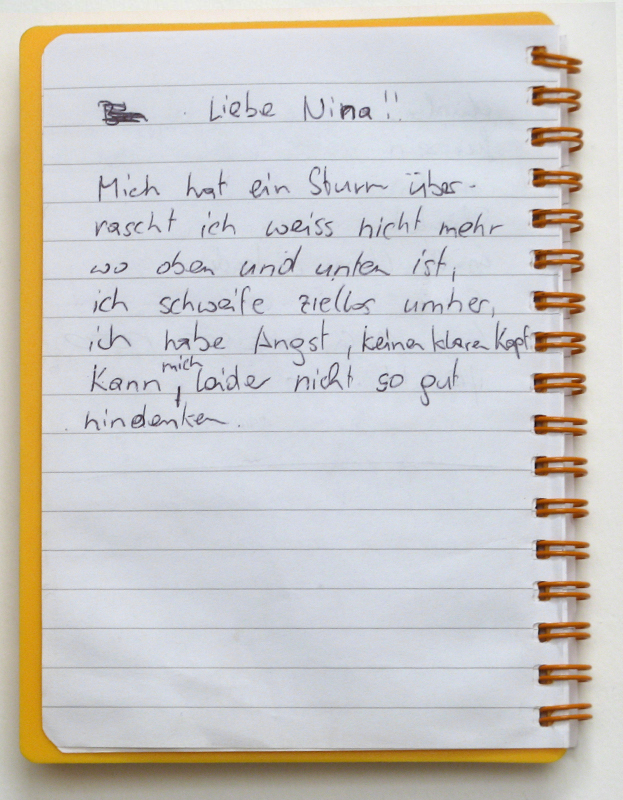 Liebe Nina!!
Mich hat ein Sturm über-
rascht ich weiss nicht mehr
wo oben und unten ist,
ich schweife ziellos umher,
ich habe Angst, keinen klaren Kopf
Kann mich, leider nicht so gut
hindenken.